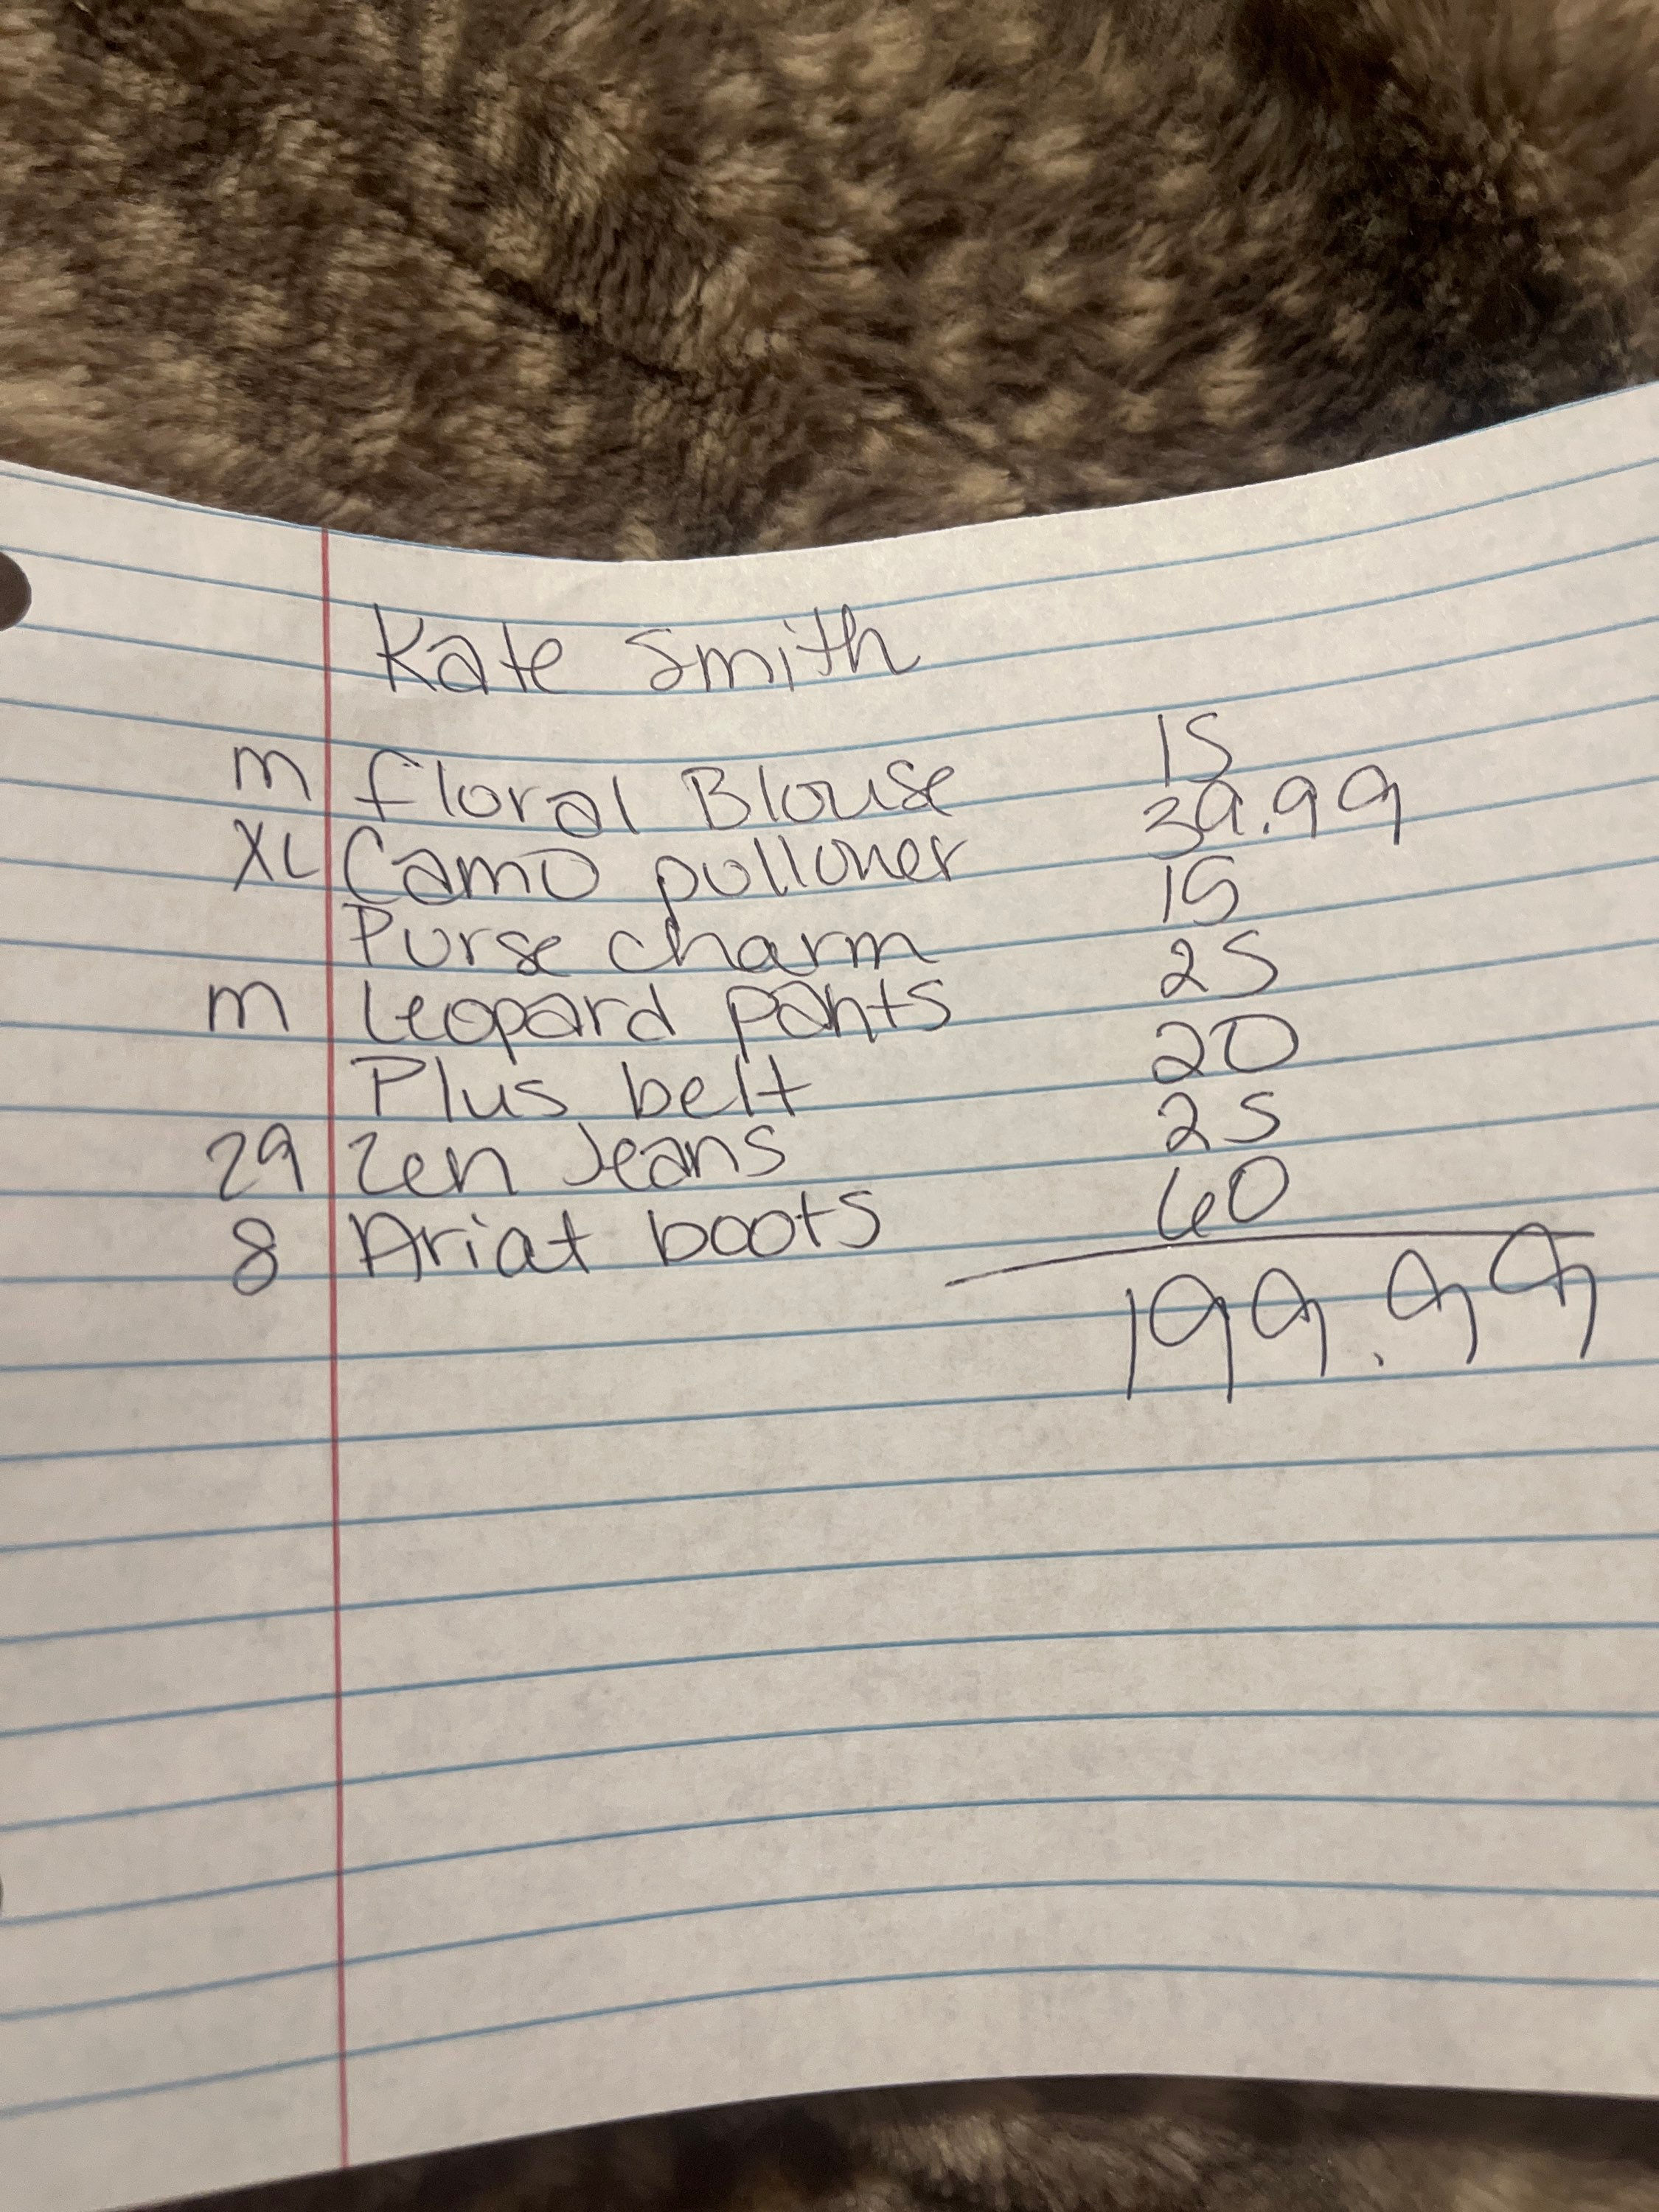 Kate Smith
m floral Blouse 15
XL Camo pullover 39.99
Purse charm 15
m Leopard pants 25
Plus belt 20
29 Zen Jeans 25
8 Ariat boots 60
199.99